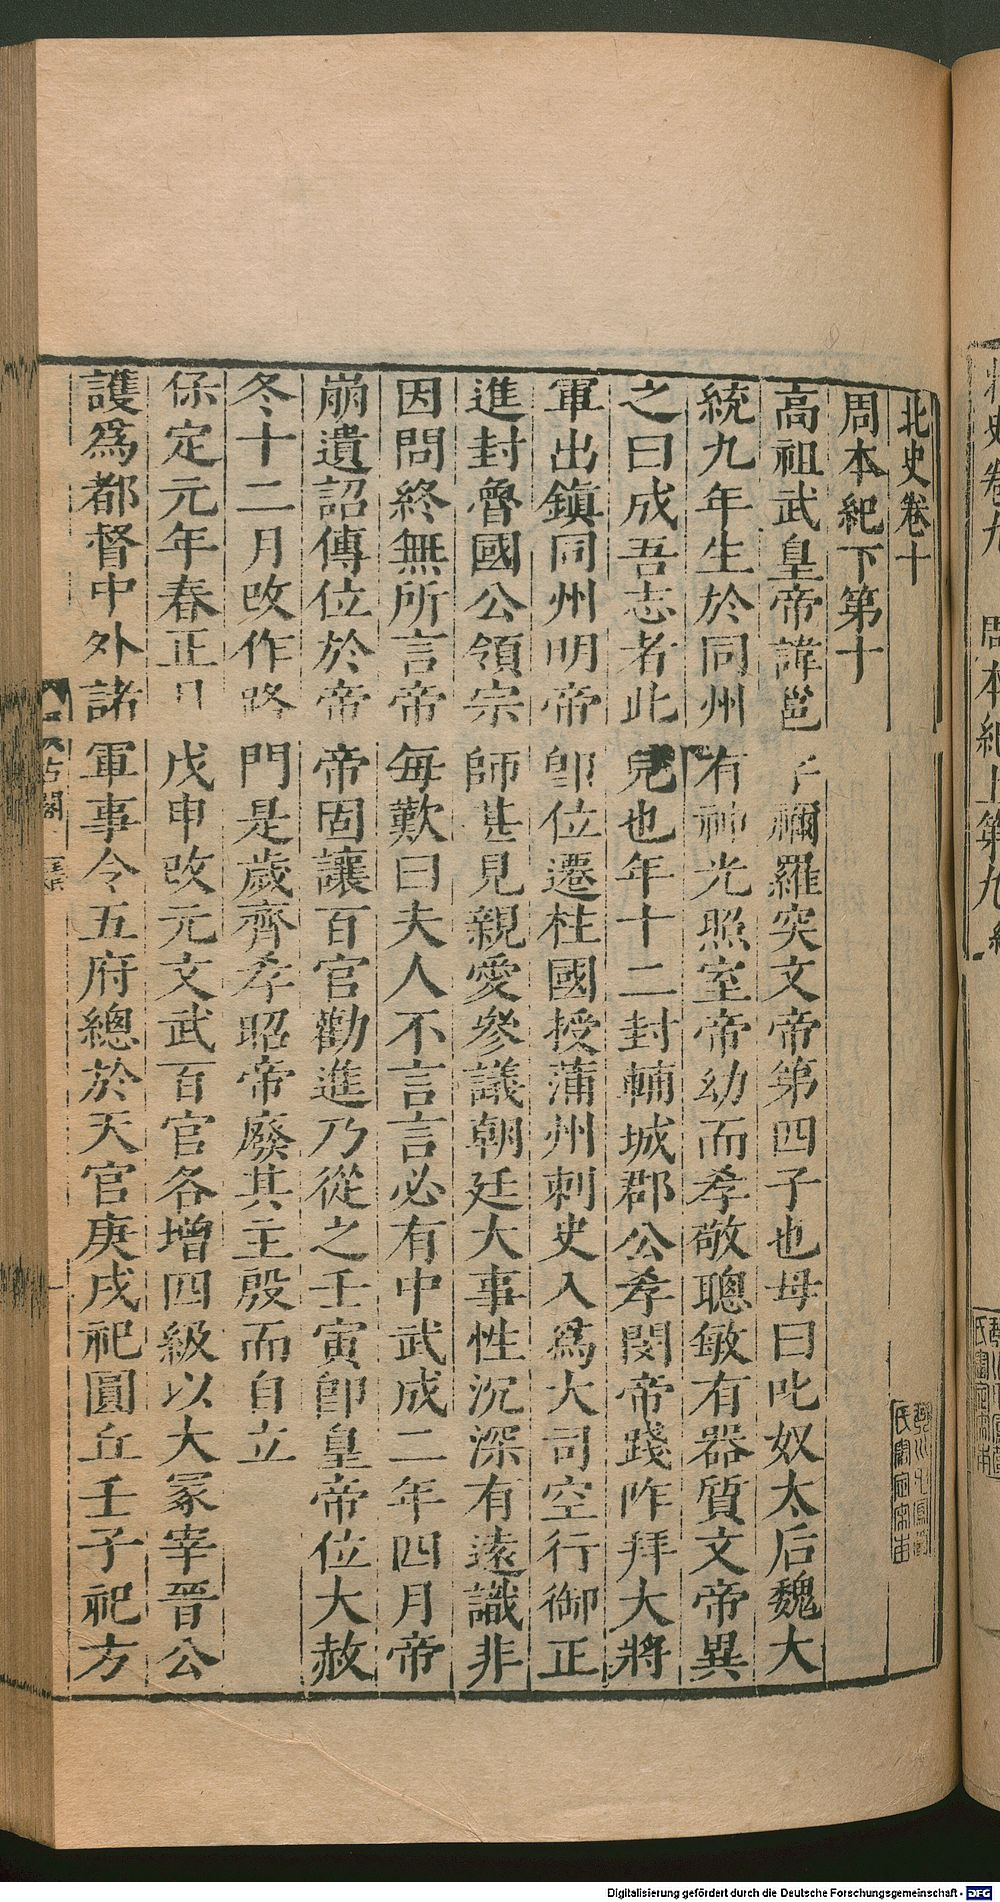 北史卷十
周本紀下第十
高祖武皇帝諱邕字禰羅突文帝第四子也母曰叱奴太后魏大
統九年生於同州有神光照室帝幼而孝敬聰敏有器質文帝異
之曰成吾志者此兒也年十二封輔城郡公孝閔帝踐阼拜大將
軍出鎮同州明帝即位遷柱國授蒲州刺史入爲大司空行御正
進封魯國公領宗師甚見親愛參議朝廷大事性沉深有遠識非
因問終無所言帝每歎曰夫人不言言必有中武成二年四月帝
崩遺詔傳位於帝帝固讓百官勸進乃從之壬寅卽皇帝位大赦
冬十二月改作路門是歲齊孝昭帝廢其主殷而自立
保定元年春正月戊申改元文武百官各增四級以大冢宰晉公
護爲都督中外諸軍事令五府總於天官庚戌祀圓丘壬子祀方
Digitalisierung gefördert durch die Deutsche Forschungsgemeinschaft - DFG